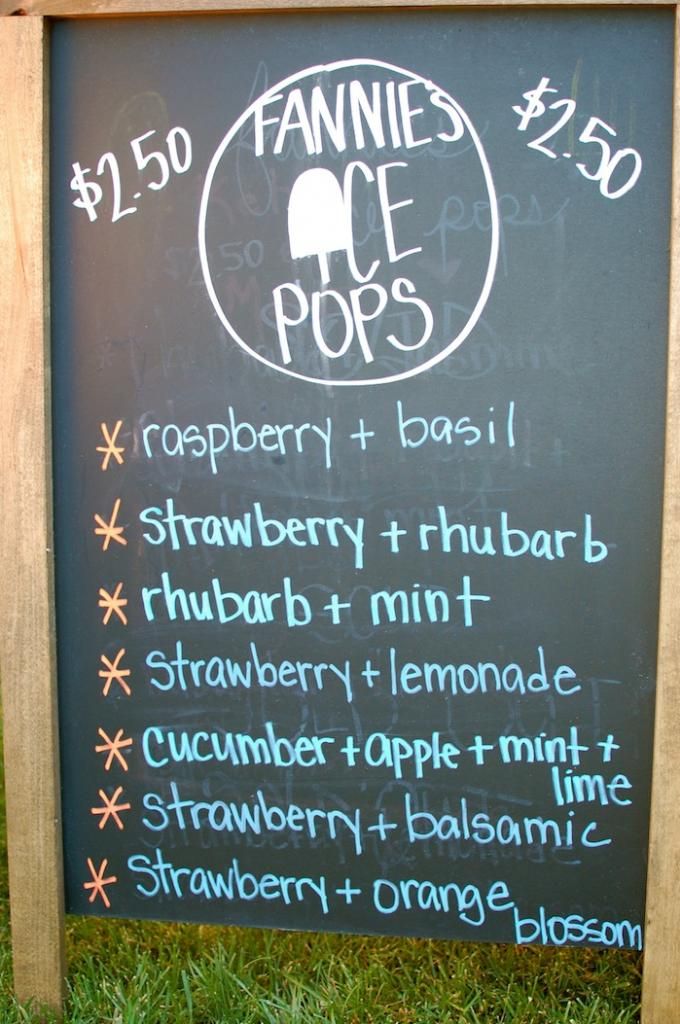 $2.50
FANNIE'S
ICE
POPS
$2.50
* raspberry + basil
* strawberry + rhubarb
* rhubarb + mint
* strawberry + lemonade
* cucumber + apple + mint +
lime
* strawberry + balsamic
* strawberry + orange
blossom